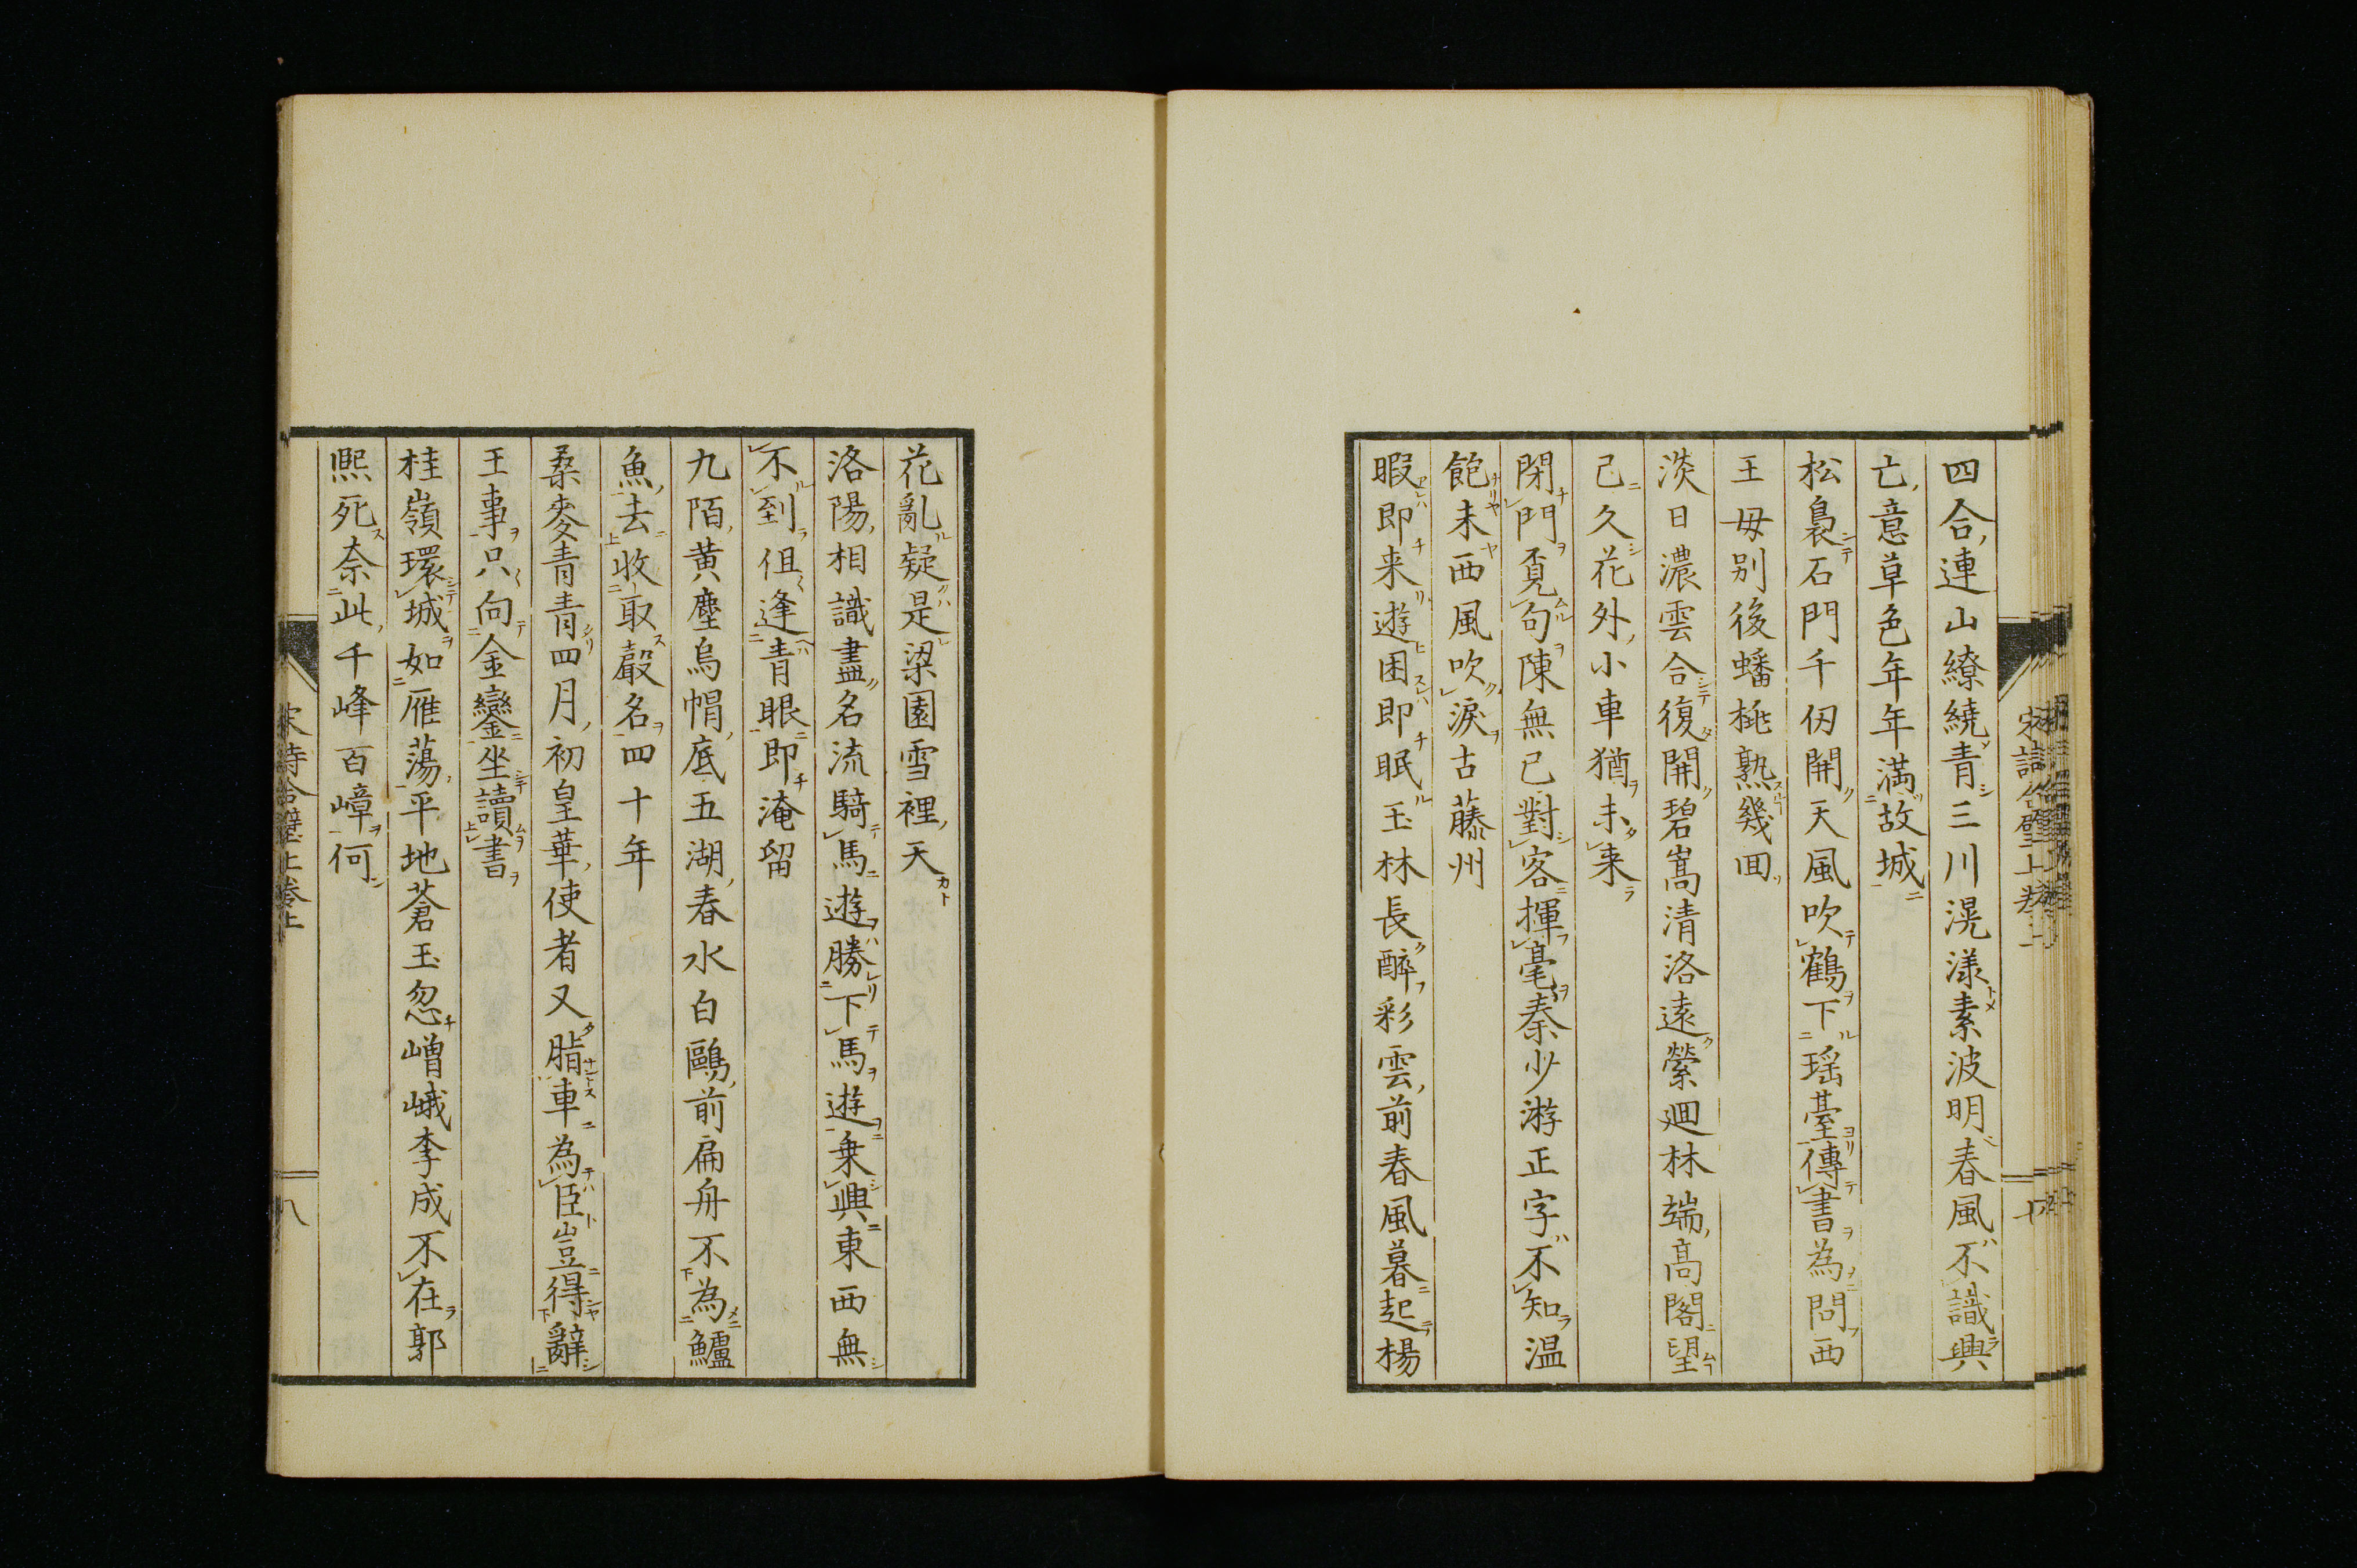 四合連山繚繞青三川滉漾素波明春風不識興
亡意草色年年満故城
松裊石門千仭開天風吹鶴下瑶臺傳書為問西
王母别後蟠桃熟幾回
淡日濃雲合復開碧嵩清洛遠縈廻林端髙閣望
已久花外小車猶未来
閉門覔句陳無已對客揮毫秦少游正字不知温
飽未西風吹淚古藤州
暇即来遊困即眠玉林長醉彩雲前春風暮起楊
花亂疑是梁園雪裡天
洛陽相識盡名流騎馬遊勝下馬遊乗興東西無
不到但逢青眼即淹留
九陌黄塵烏帽底五湖春水白鷗前扁舟不為鱸
魚去收取聲名四十年
桑麥青青四月初皇華使者又脂車為臣豈得辭
王事只向金鑾坐讀書
桂嶺環城如雁蕩平地蒼玉忽嶒峨李成不在郭
熙死奈此千峰百嶂何
宋詩合璧上巻上
八